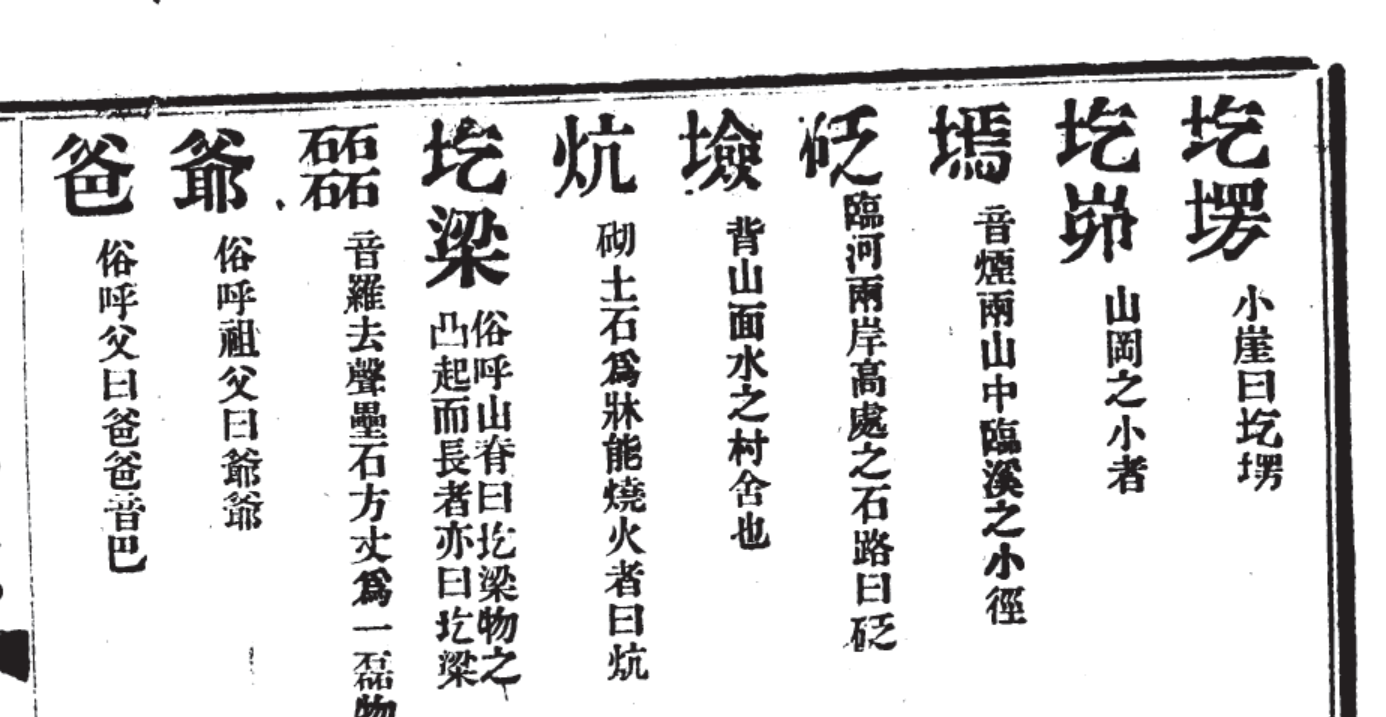 圪塄 小崖曰圪塄
圪峁 山岡之小者
墕 音煙兩山中臨溪之小徑
砭 臨河兩岸高處之石路曰砭
壏 背山面水之村舍也
炕 砌土石爲牀能燒火者曰炕
圪梁 俗呼山脊曰圪梁物之
凸起而長者亦曰圪梁
磊 音羅去聲壘石方丈爲一磊物
爺 俗呼祖父曰爺爺
爸 俗呼父曰爸爸音巴